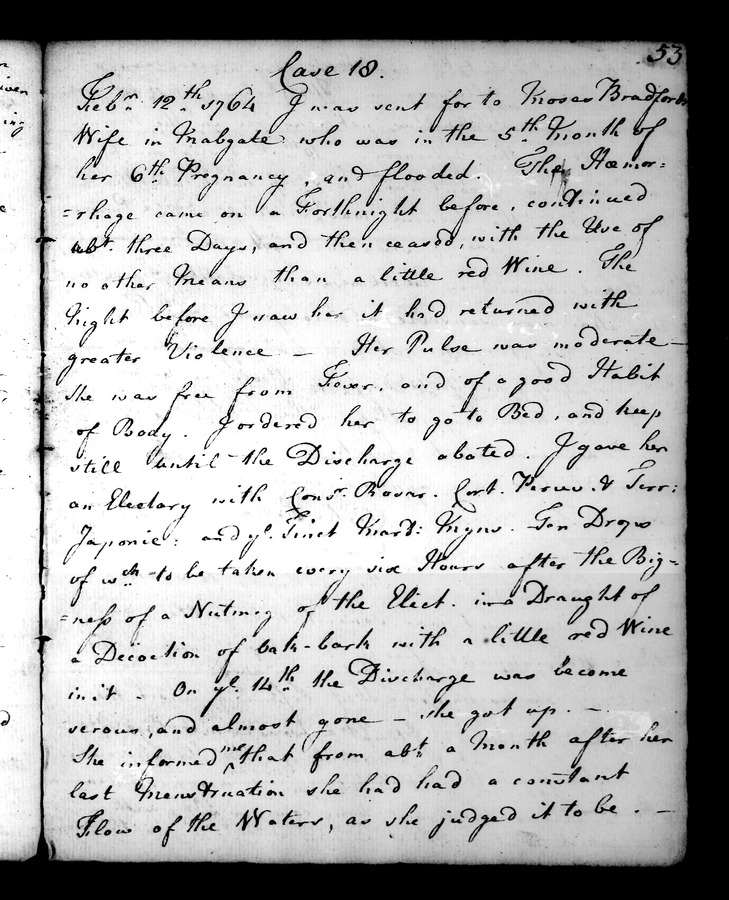 53
Case 18.
Febry. 12th. 1764 I was sent for to Moses Bradford's
Wife in Mabgate who was in the 5th. Month of
her 6th. Pregnancy, and flooded. The Hæmor=
=rhage came on a Forthnight before, continued
abt. three Days, and then ceased, with the Use of
no other Means than a little red Wine. The
Night before I saw her it had returned with
greater Violence — Her Pulse was moderate —
She was free from Fever, and of a good Habit
of Body. I ordered her to go to Bed, and keep
still until the Discharge abated. I gave her
an Electary with Consr. Rosar. Cort. Peruv. & Terr:
Japonic: and ye. Tinct Mart: Myns. Ten Drops
of wch. to be taken every six Hours after the Big=
=ness of a Nutmeg of the Elect. in a Draught of
a Decoction of Oak-bark with a little red Wine
in it - On ye. 14th. the Discharge was become
serous, and almost gone — she got up. —
She informed me that from abt. a Month after her
last Menstruation she had had a constant
Flow of the Waters, as she judged it to be. —